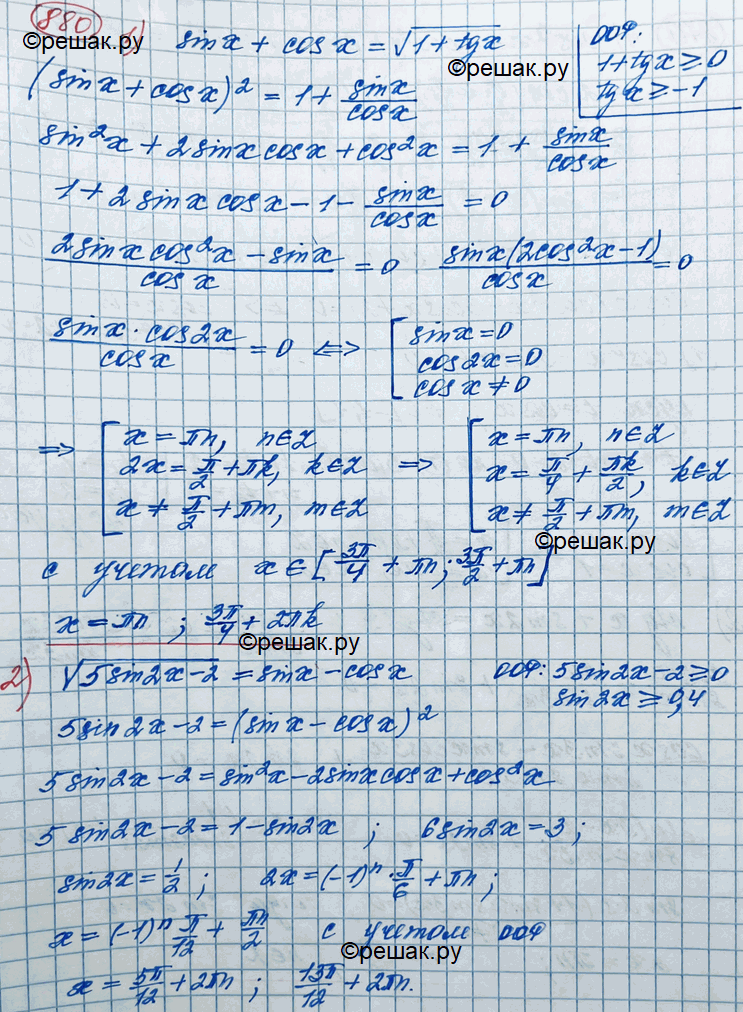 880 1) sin x + cos x = √(1 + tg x)
©решак.ру
ООФ:
1 + tg x ≥ 0
tg x ≥ -1
©решак.ру
(sin x + cos x)² = 1 + sin x / cos x
sin²x + 2 sin x cos x + cos²x = 1 + sin x / cos x
1 + 2 sin x cos x - 1 - sin x / cos x = 0
(2 sin x cos²x - sin x) / cos x = 0 sin x (2cos²x - 1) / cos x = 0
sin x · cos 2x / cos x = 0 <=> [ sin x = 0
cos 2x = 0
cos x ≠ 0
©решак.ру
=> [ x = πn, n ∈ Z
2x = π/2 + πk, k ∈ Z
x ≠ π/2 + πm, m ∈ Z
=> [ x = πn, n ∈ Z
x = π/4 + πk/2, k ∈ Z
x ≠ π/2 + πm, m ∈ Z
©решак.ру
с учетом x ∈ [3π/4 + πn; 3π/2 + πn]
x = πn ; 3π/4 + 2πk
©решак.ру
2) √(5 sin 2x - 2) = sin x - cos x ООФ: 5 sin 2x - 2 ≥ 0
sin 2x ≥ 0,4
5 sin 2x - 2 = (sin x - cos x)²
5 sin 2x - 2 = sin²x - 2 sin x cos x + cos²x
5 sin 2x - 2 = 1 - sin 2x ; 6 sin 2x = 3 ;
sin 2x = 1/2 ; 2x = (-1)ⁿ · π/6 + πn ;
x = (-1)ⁿ π/12 + πn/2 с учетом ООФ
©решак.ру
x = 5π/12 + 2πn ; 13π/12 + 2πn.